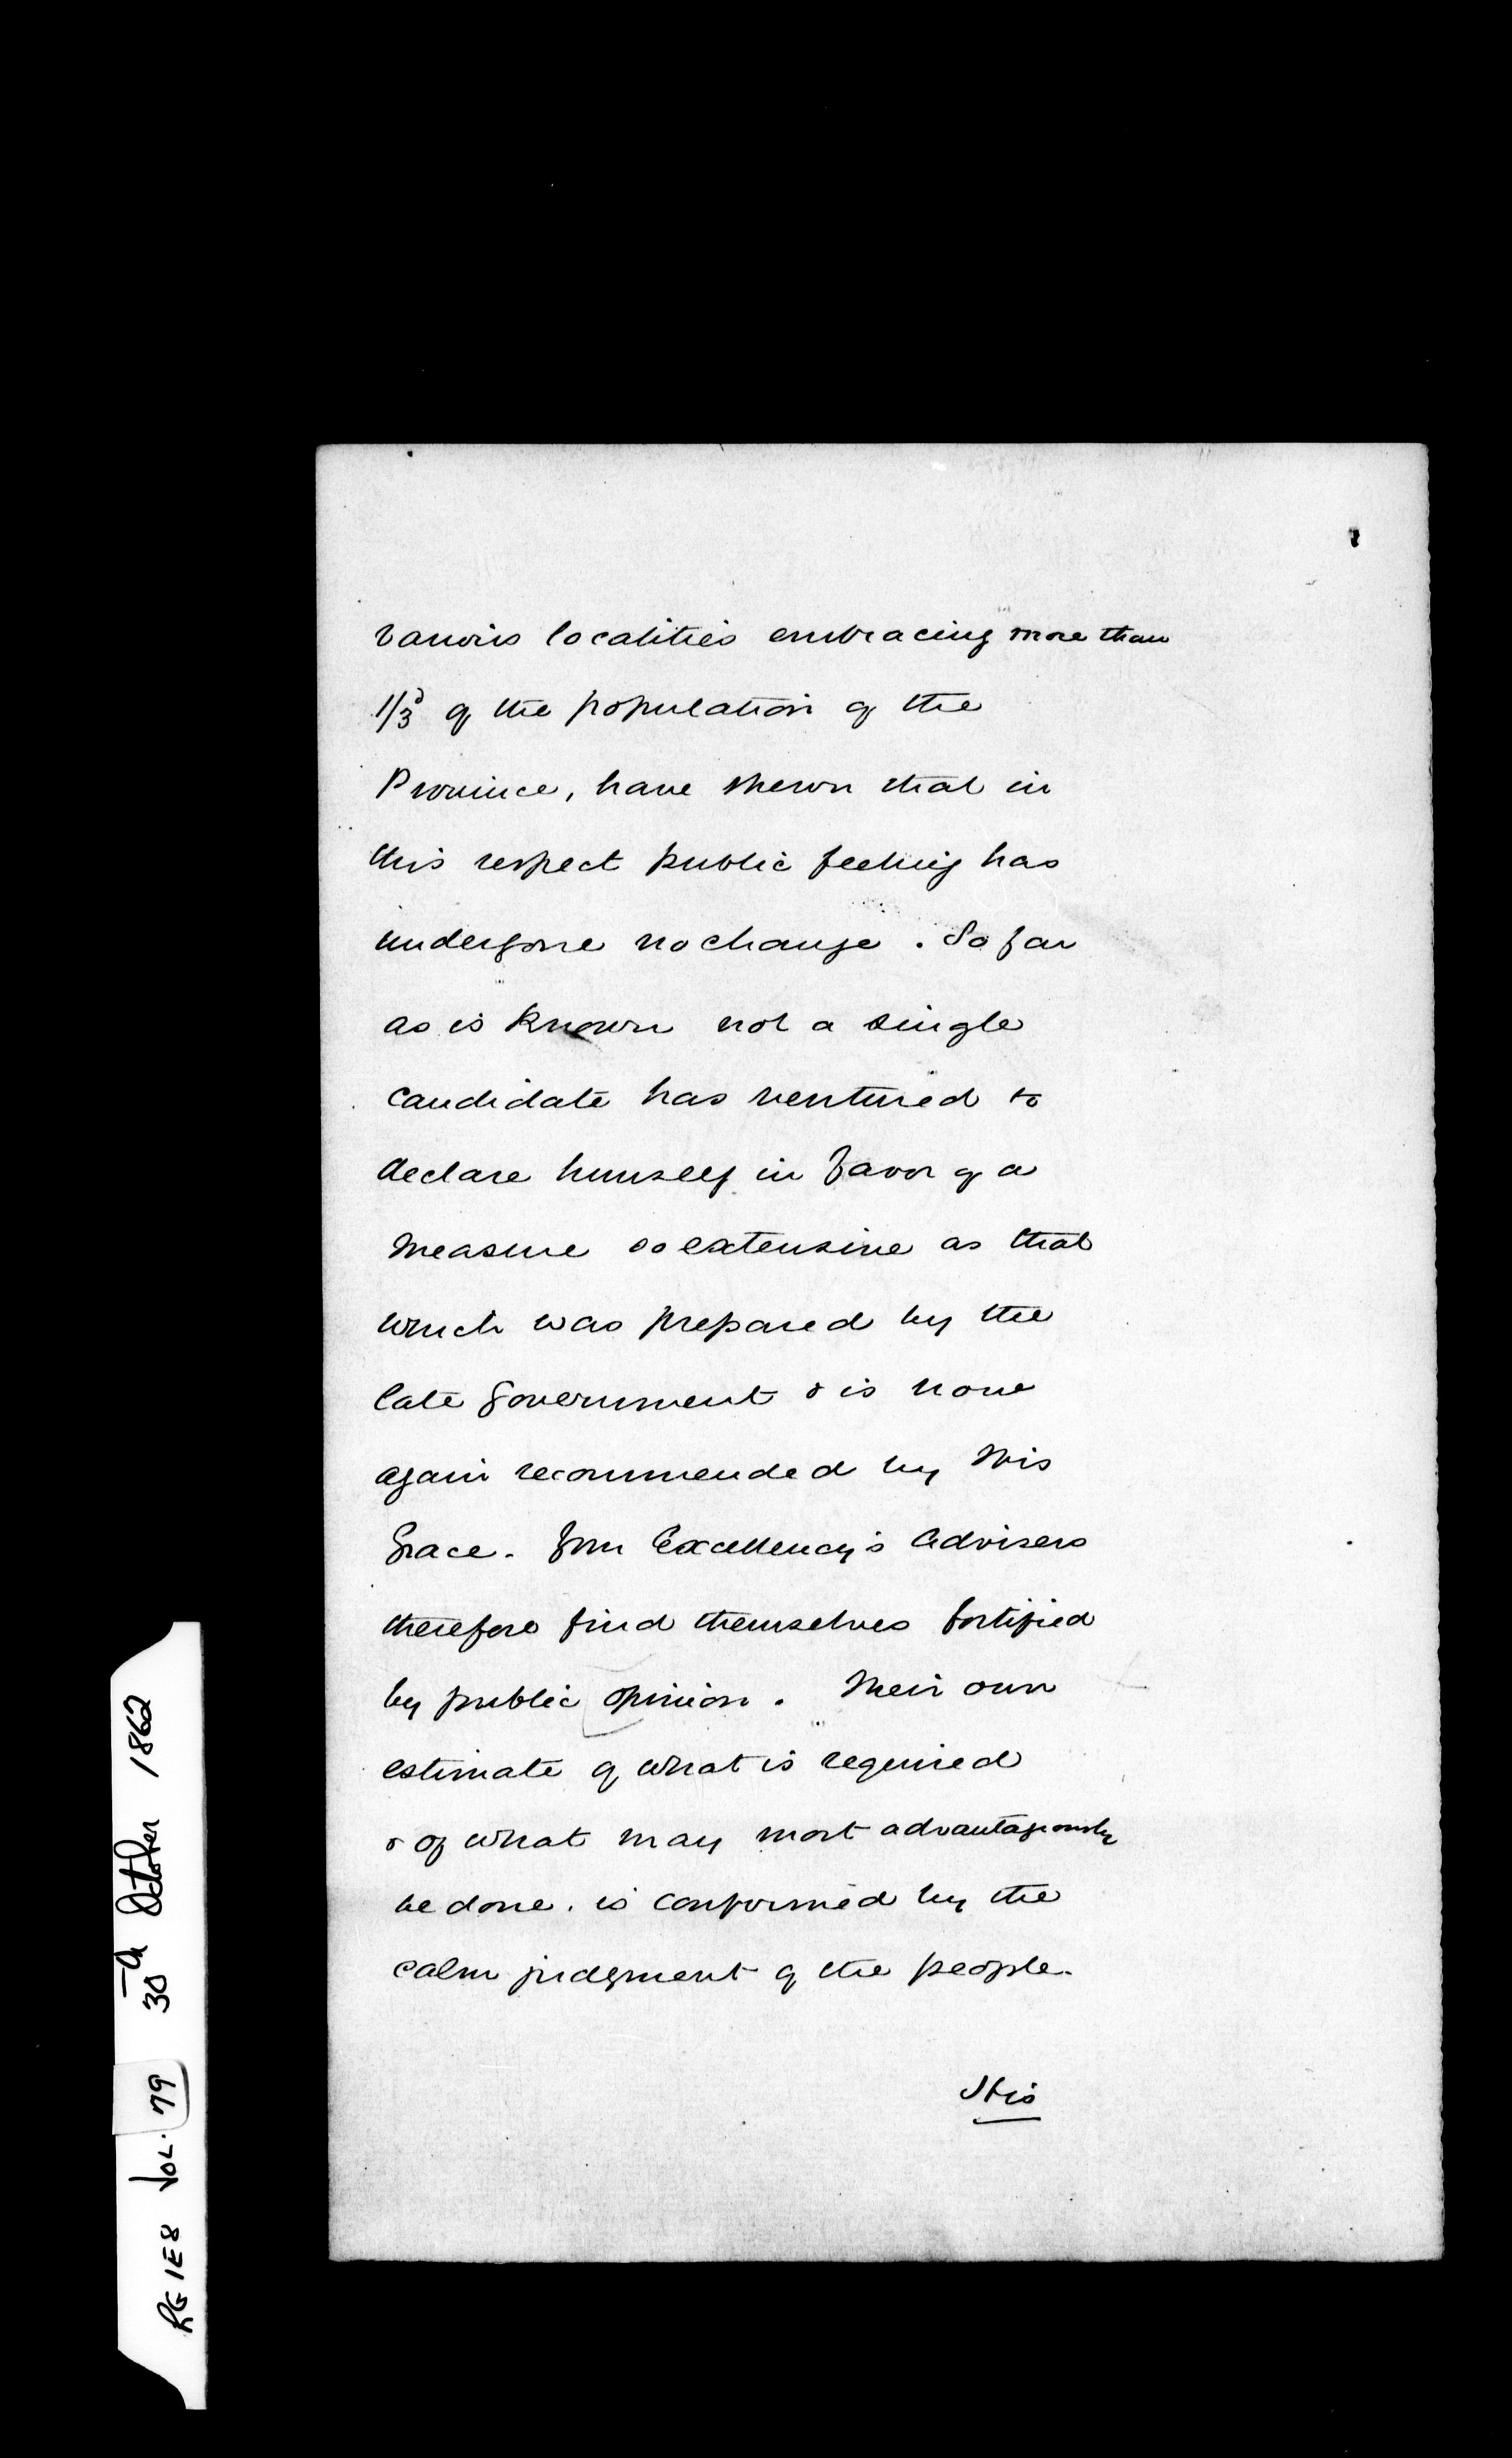 various localities embracing more than
1/3d of the population of the
Province, have shewn that in
this respect public feeling has
undergone no change. So far
as is known not a single
candidate has ventured to
declare himself in favor of a
measure so extensive as that
which was prepared by the
late Government & is now
again recommended by His
Grace. Your Excellency's Advisers
therefore find themselves fortified
by public opinion. Their own
estimate of what is required
& of what may most advantageously
be done. is confirmed by the
calm judgment of the people.
His
RG 1E8 VOL. 79 30th October 1862